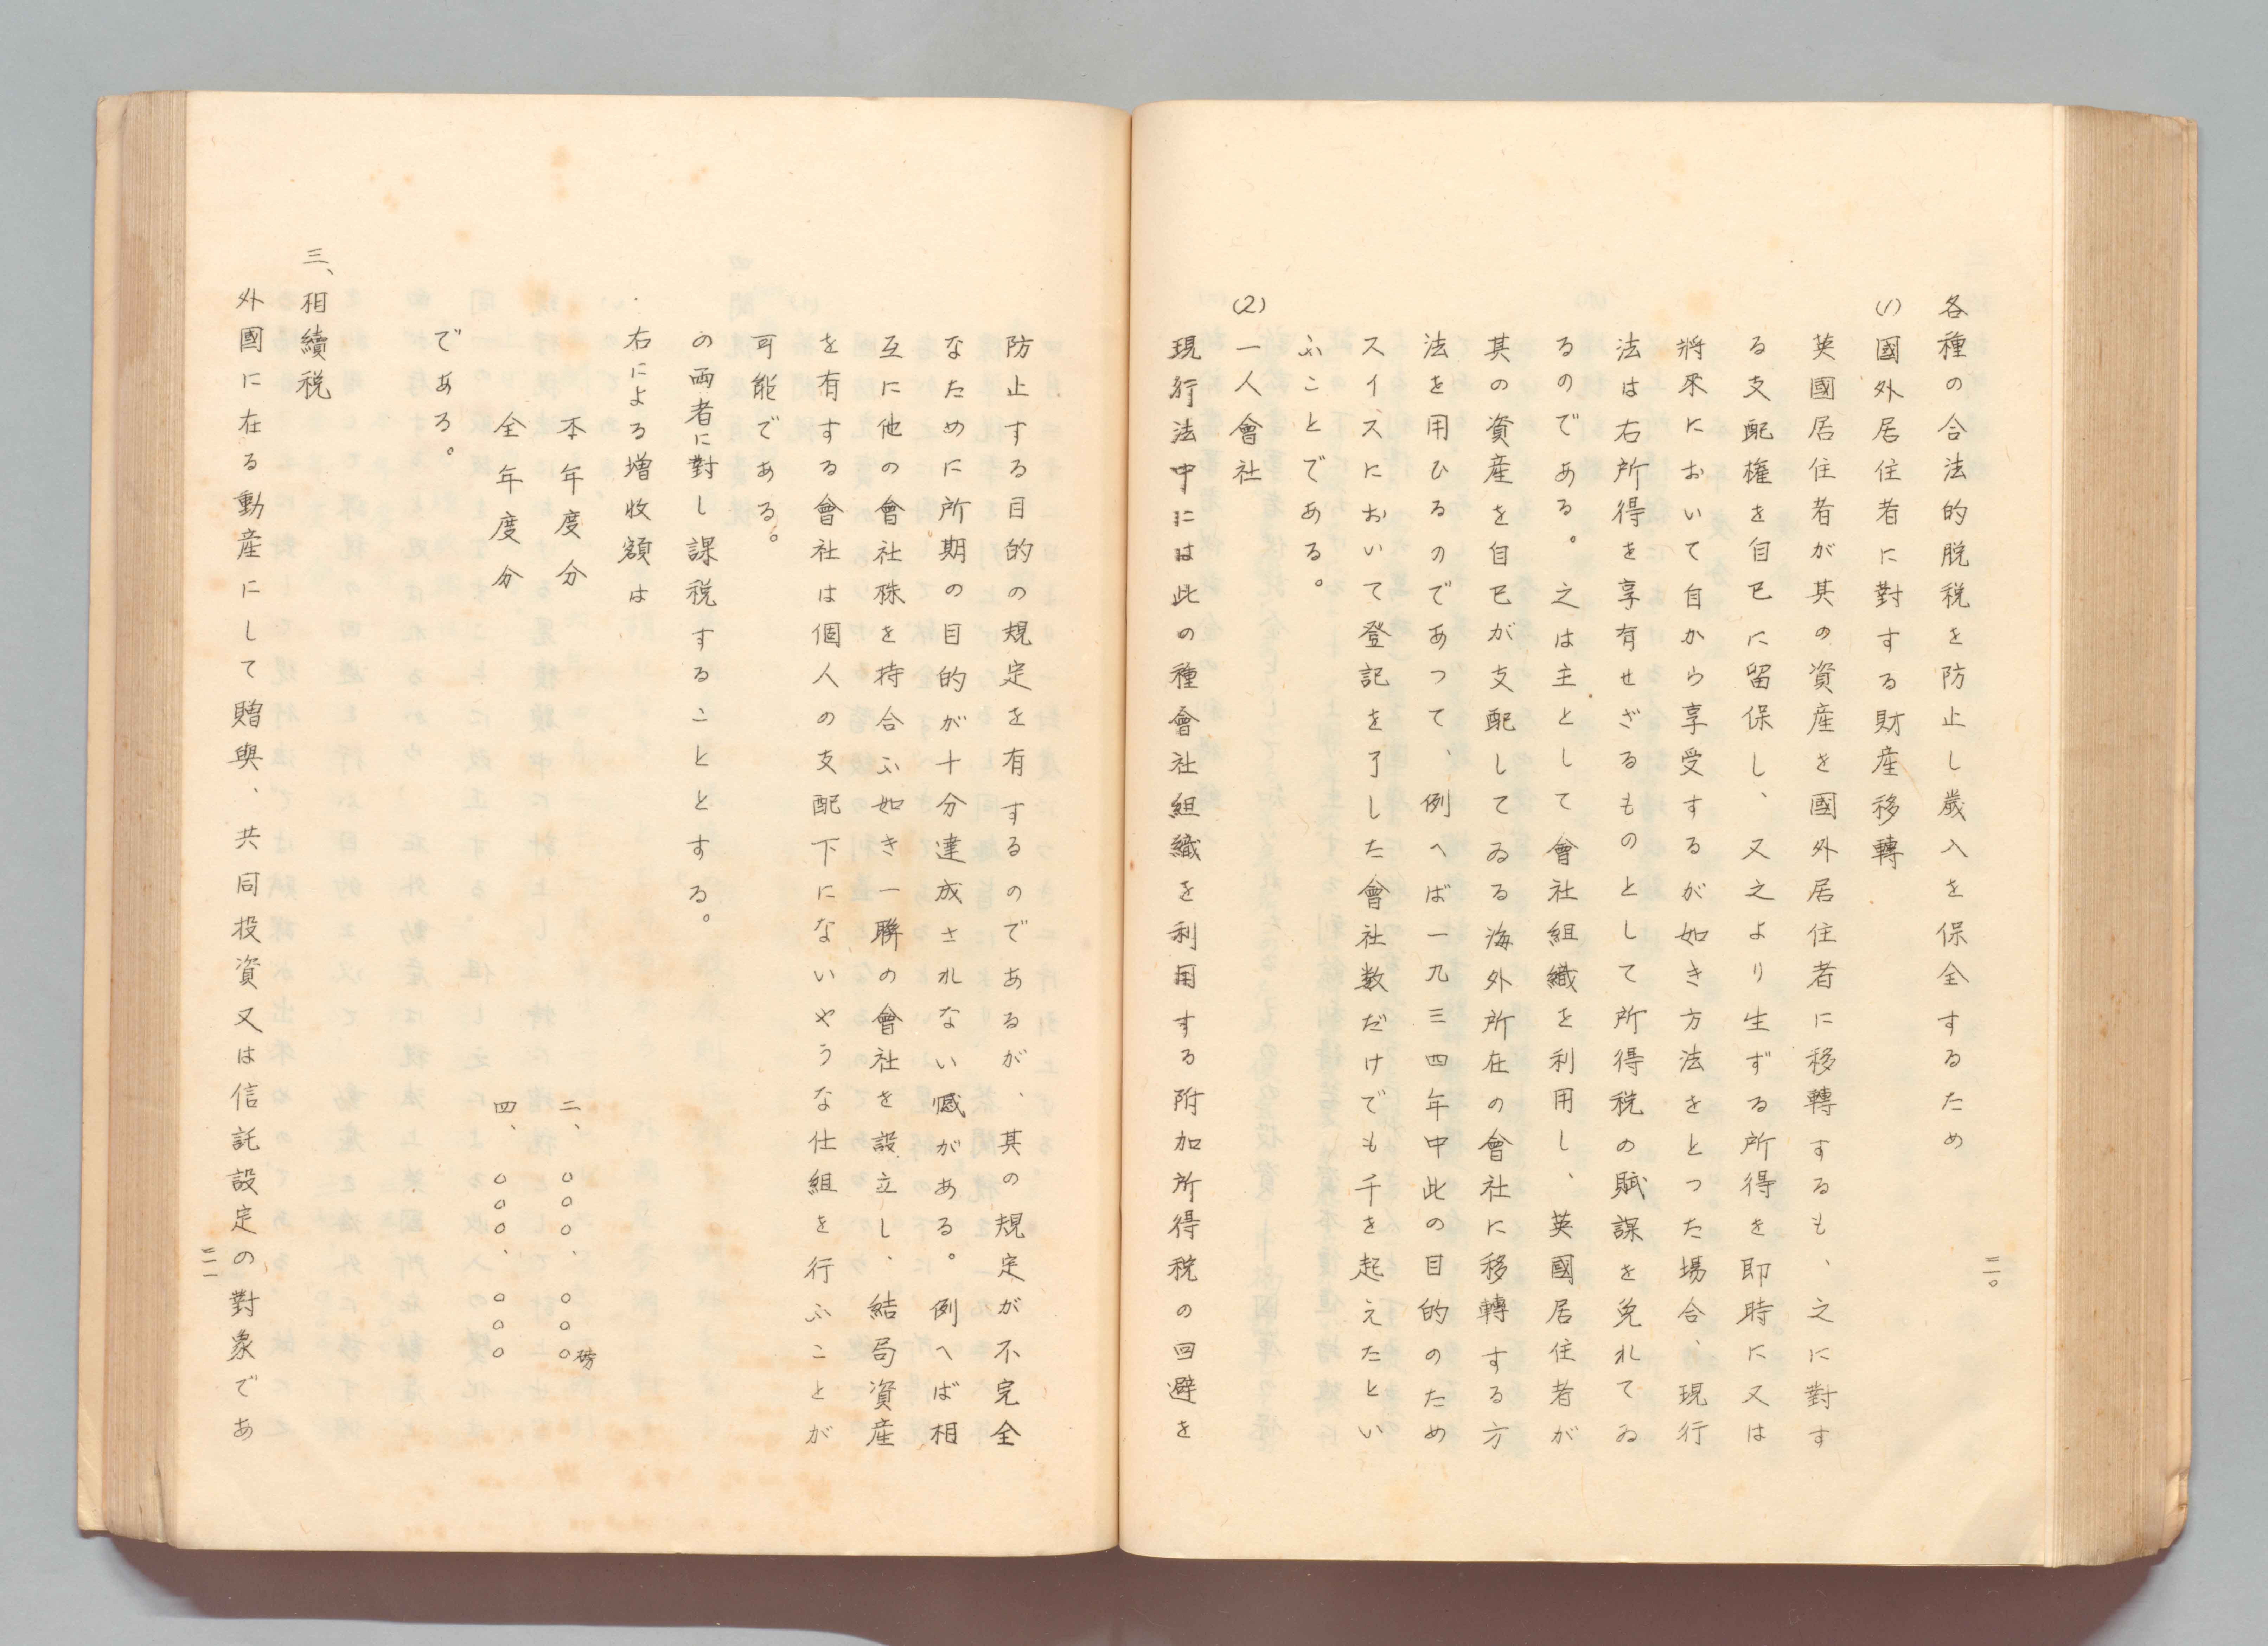 各種の合法的脱税を防止し歳入を保全するため
(1) 國外居住者に對する財産移轉
英國居住者が其の資産を國外居住者に移轉するも、之に對す
る支配權を自己に留保し、又之より生ずる所得を即時に又は
將來において自から享受するが如き方法をとつた場合、現行
法は右所得を享有せざるものとして所得税の賦課を免れてゐ
るのである。之は主として會社組織を利用し、英國居住者が
其の資産を自己が支配してゐる海外所在の會社に移轉する方
法を用ひるのであつて、例へば一九三四年中此の目的のため
スイスにおいて登記を了した會社数だけでも千を起えたとい
ふことである。
(2) 一人會社
現行法中には此の種會社組織を利用する附加所得税の回避を
二〇
防止する目的の規定を有するのであるが、其の規定が不完全
なために所期の目的が十分達成されない憾がある。例へば相
互に他の會社株を持合ふ如き一聯の會社を設立し、結局資産
を有する會社は個人の支配下にないやうな仕組を行ふことが
可能である。
の両者に對し課税することとする。
右による増收額は
本年度分 二、〇〇〇、〇〇〇磅
全年度分 四、〇〇〇、〇〇〇
である。
三、相續税
外國に在る動産にして贈與、共同投資又は信託設定の對象であ
二一